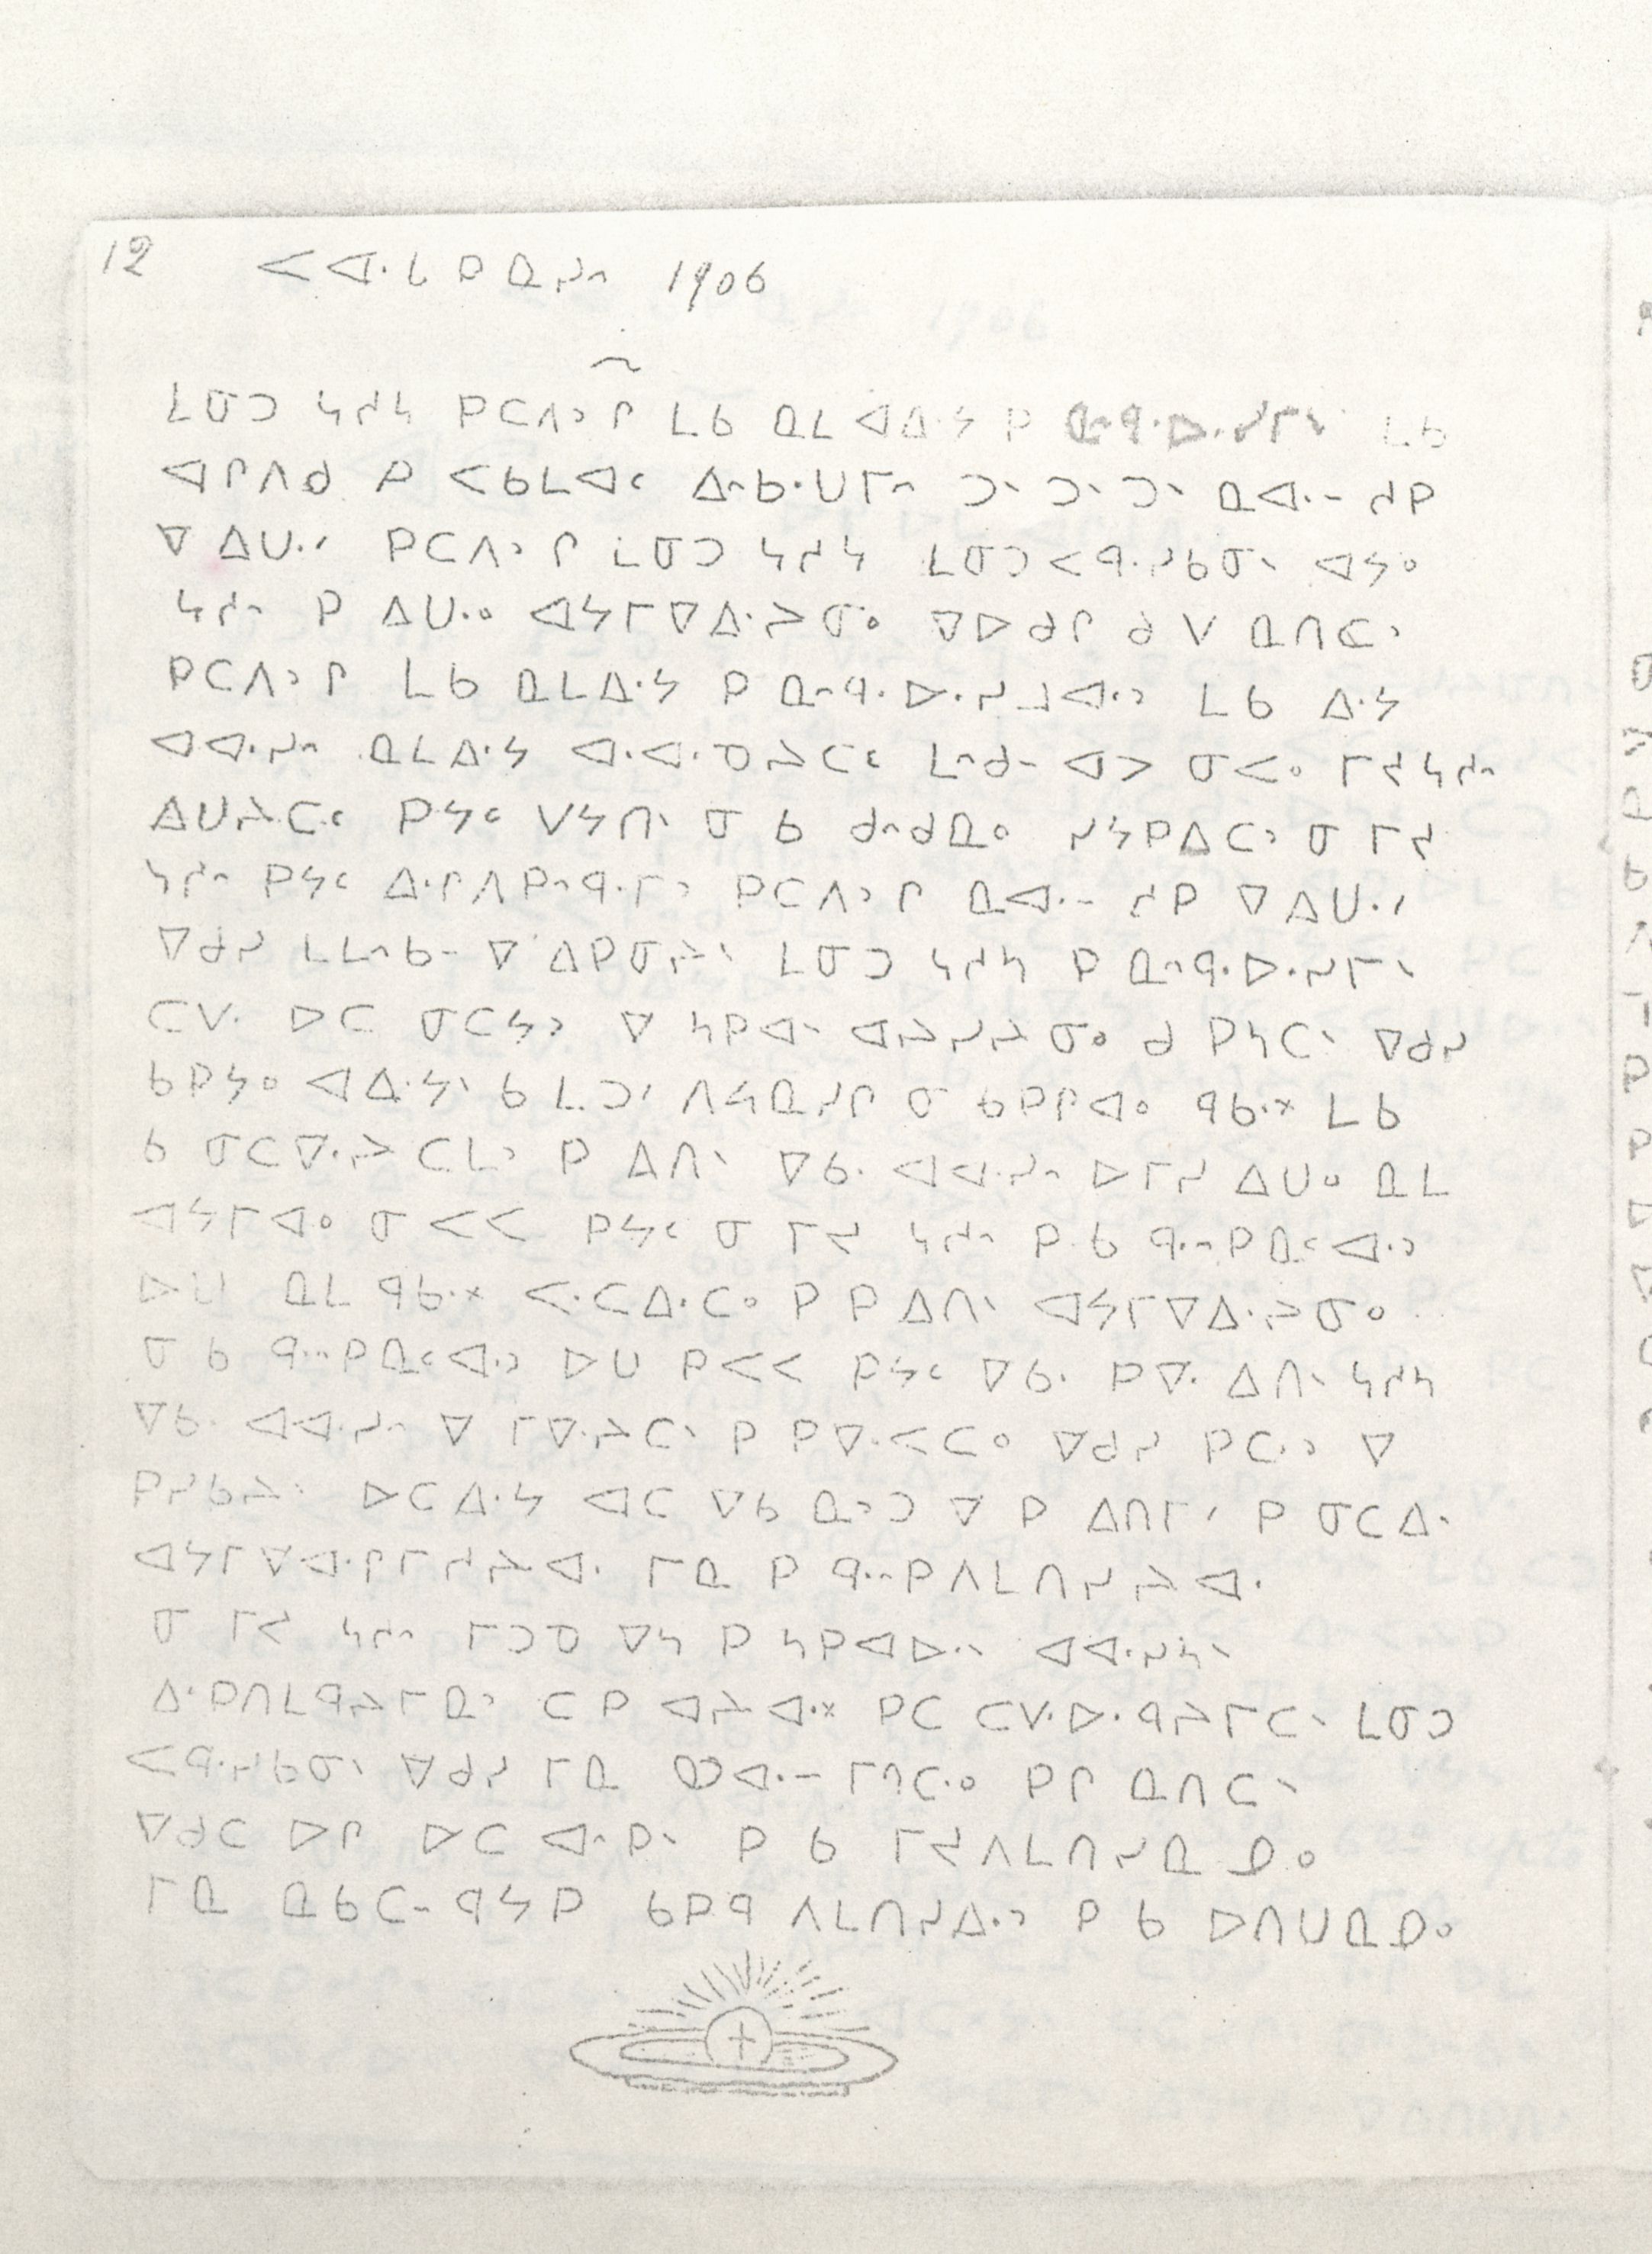 12 ᐸᐊᐧᒐᑭᓇᓯᐢ 1906
ᒪᓂᑐ ᓴᓱᓴ ᑭᑕᐱᐣ ᒋ ᒪᑲ ᓇᒪ ᐊᐃᐧᔭ ᑭ ᓇᐢᑫᐧᐅᐧᓯᒥᐠ ᒪᑲ
ᐊᒋᐱᑯ ᑭ ᐸᑲᒪᐊᑦ ᐃᐢᑲᐧᑌᒥᐢ ᑐᐠ ᑐᐠ ᑐᐠ ᓇᐊᐧᐨ ᓱᑭ
ᐁ ᐃᑌᐧᐟ ᑭᑕᐱᐣ ᒋ ᒪᓂᑐ ᓴᓱᓴ ᒪᓂᑐ ᐸᑫᐧᓯᑲᓂᐠ ᐊᔭᐤ
ᓴᓱᐢ ᑭ ᐃᑌᐧᐤ ᐊᔭᒥᐁᐃᐧᔨᓂᐤ ᐁᐅᑯᒋ ᑯ ᐯ ᓇᑎᑕᐣ
ᑭᑕᐱᐣ ᒋ ᒪᑲ ᓇᒪᐃᐧᔭ ᑭ ᓇᐢᑫᐧᐅᐧᓯᒧᐊᐧᐣ ᒪᑲ ᐃᐧᔭ
ᐊᐊᐧᓯᐢ ᓇᒪᐃᐧᔭ ᐊᐧᐊᐧᓀᔨᑕᑦ ᒪᐢᑯᐨ ᐊᐳ ᓂᐸᐤ ᒥᔪᓴᓱᐢ
ᐃᑌᔨᑕᑦ ᑭᔭᑦ ᐯᔭᑎᐠ ᓂ ᑲ ᑯᐢᑯᓇᐤ ᓯᔭᑭᐃᑕᐣ ᓂ ᒥᔪ
ᓴᓱᐢ ᑭᔭᑦ ᐃᐧᒋᐱᑭᐢᑫᐧᒥᐣ ᑭᑕᐱᐣ ᒋ ᓇᐊᐧᐨ ᓱᑭ ᐁ ᐃᑌᐧᐟ
ᐁᑯᓯ ᒪᒪᐢᑲᐨ ᐁ ᐃᑭᓂᔨᐠ ᒪᓂᑐ ᓴᓱᓴ ᑭ ᓇᐢᑫᐧᐅᐧᓯᒥᐠ
ᑕᐯᐧ ᐅᑕ ᓂᑕᔭᐣ ᐁ ᓴᑭᐊᐠ ᐊᔨᓯᔨᓂᐤ ᑯ ᑭᓴᑕᐠ ᐁᑯᓯ
ᑲᑭᔭᐤ ᐊᐃᐧᔭᐠ ᑲ ᒪᑐᐟ ᐱᔭᓇᓯᒋ ᓂ ᑲᑭᒋᐊᐤ ᑫᑲᐧᕽ ᒪᑲ
ᑲ ᓂᑕᐁᐧᔨᑕᒪᐣ ᑭ ᐃᑎᐠ ᐁᑲᐧ ᐊᐊᐧᓯᐢ ᐅᒥᓯ ᐃᑌᐤ ᓇᒪ
ᐊᔭᒥᐊᐤ ᓂᐸᐸ ᑭᔭᑦ ᓂ ᒥᔪ ᓴᓱᐢ ᑭ ᑲ ᑫᐧᐢᑭᓇᑦᐊᐧᐣ
ᐅᑌ ᓇᒪ ᑫᑲᐧᕽ ᐸᐧᑕᐃᐧᑕᐤ ᑭ ᑭ ᐃᑎᐠ ᐊᔭᒥᐁᐃᐧᔨᓂᐤ
ᓂ ᑲ ᑫᐧᐢᑭᓇᑦᐊᐧᐣ ᐅᑌ ᑭᐸᐸ ᑭᔭᑦ ᐁᑲᐧ ᑭᐁᐧ ᐃᑎᐠ ᓴᓱᓴ
ᐁᑲᐧ ᐊᐊᐧᓯᐢ ᐁ ᒥᐁᐧᔨᑕᐠ ᑭ ᑭᐁᐧᐸᑕᐤ ᐁᑯᓯ ᑭᑕᐧᐣ ᐁ
ᑭᓯᑲᔨᐠ ᐅᑕᐃᐧᔭ ᐊᑕ ᐁᑲ ᓇᐣᑐ ᐁ ᑭ ᐃᑎᒥᐟ ᑭ ᓂᑕᐃᐧ
ᐊᔭᒥᐁᐊᐧᒋᒥᓱᔨᐊᐧ ᒥᓇ ᑭ ᑫᐧᐢᑭᐱᒪᑎᓯᔨᐊᐧ
ᓂ ᒥᔪ ᓴᓱᐢ ᒥᑐᓀ ᐁᓴ ᑭ ᓴᑭᐊᐅᐧᐠ ᐊᐊᐧᓯᓴᐠ
ᐃᐧᑭᑎᒪᑫᔨᒥᓇᐣ ᑕ ᑭ ᐊᔨᐊᐧᕽ ᑭᑕ ᑕᐯᐧᐅᐧᑫᔨᒥᑕᐠ ᒪᓂᑐ
ᐸᑫᐧᓯᑲᓂᐠ ᐁᑯᓯ ᒥᓇ ᐊᐧᐨ ᒥᐢᑕᐤ ᑭᒋ ᓇᑎᑕᐠ
ᐁᑯᑕ ᐅᒋ ᐅᑕ ᐊᐧᐢᑭᐠ ᑭ ᑲ ᒥᔪᐱᒪᑎᓯᓇᓇᐤ
ᒥᓇ ᓇᑲᑕᐨ ᑫᔭᑭ ᑲᑭᑫ ᐱᒪᑎᓯᐃᐧᐣ ᑭ ᑲ ᐅᑎᑌᓇᓇᐤ